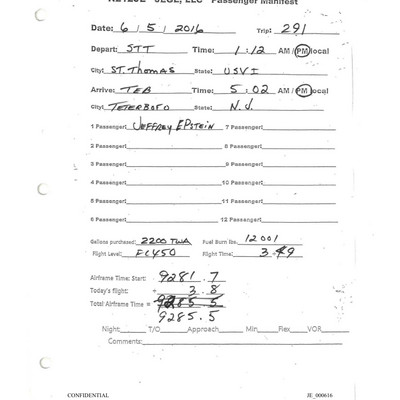 JEGE, LLC - Passenger Manifest
Date: 6/5/2016 Trip: 291
Depart: STT Time: 1:12 AM / PM local
City: ST. Thomas State: USVI
Arrive: TEB Time: 5:02 AM / PM local
City: TETERBORO State: N.J.
1 Passenger: JEFFREY EPSTEIN 7 Passenger:
2 Passenger: 8 Passenger:
3 Passenger: 9 Passenger:
4 Passenger: 10 Passenger:
5 Passenger: 11 Passenger:
6 Passenger: 12 Passenger:
Gallons purchased: 2200 TWA Fuel Burn lbs. 12001
Flight Level: FL450 Flight Time: 3+49
Airframe Time: Start: 9281.7
Today's flight: + 3.8
Total Airframe Time = 9285.5
9285.5
Night: T/O Approach Min Flex VOR
Comments:
CONFIDENTIAL JE_000616